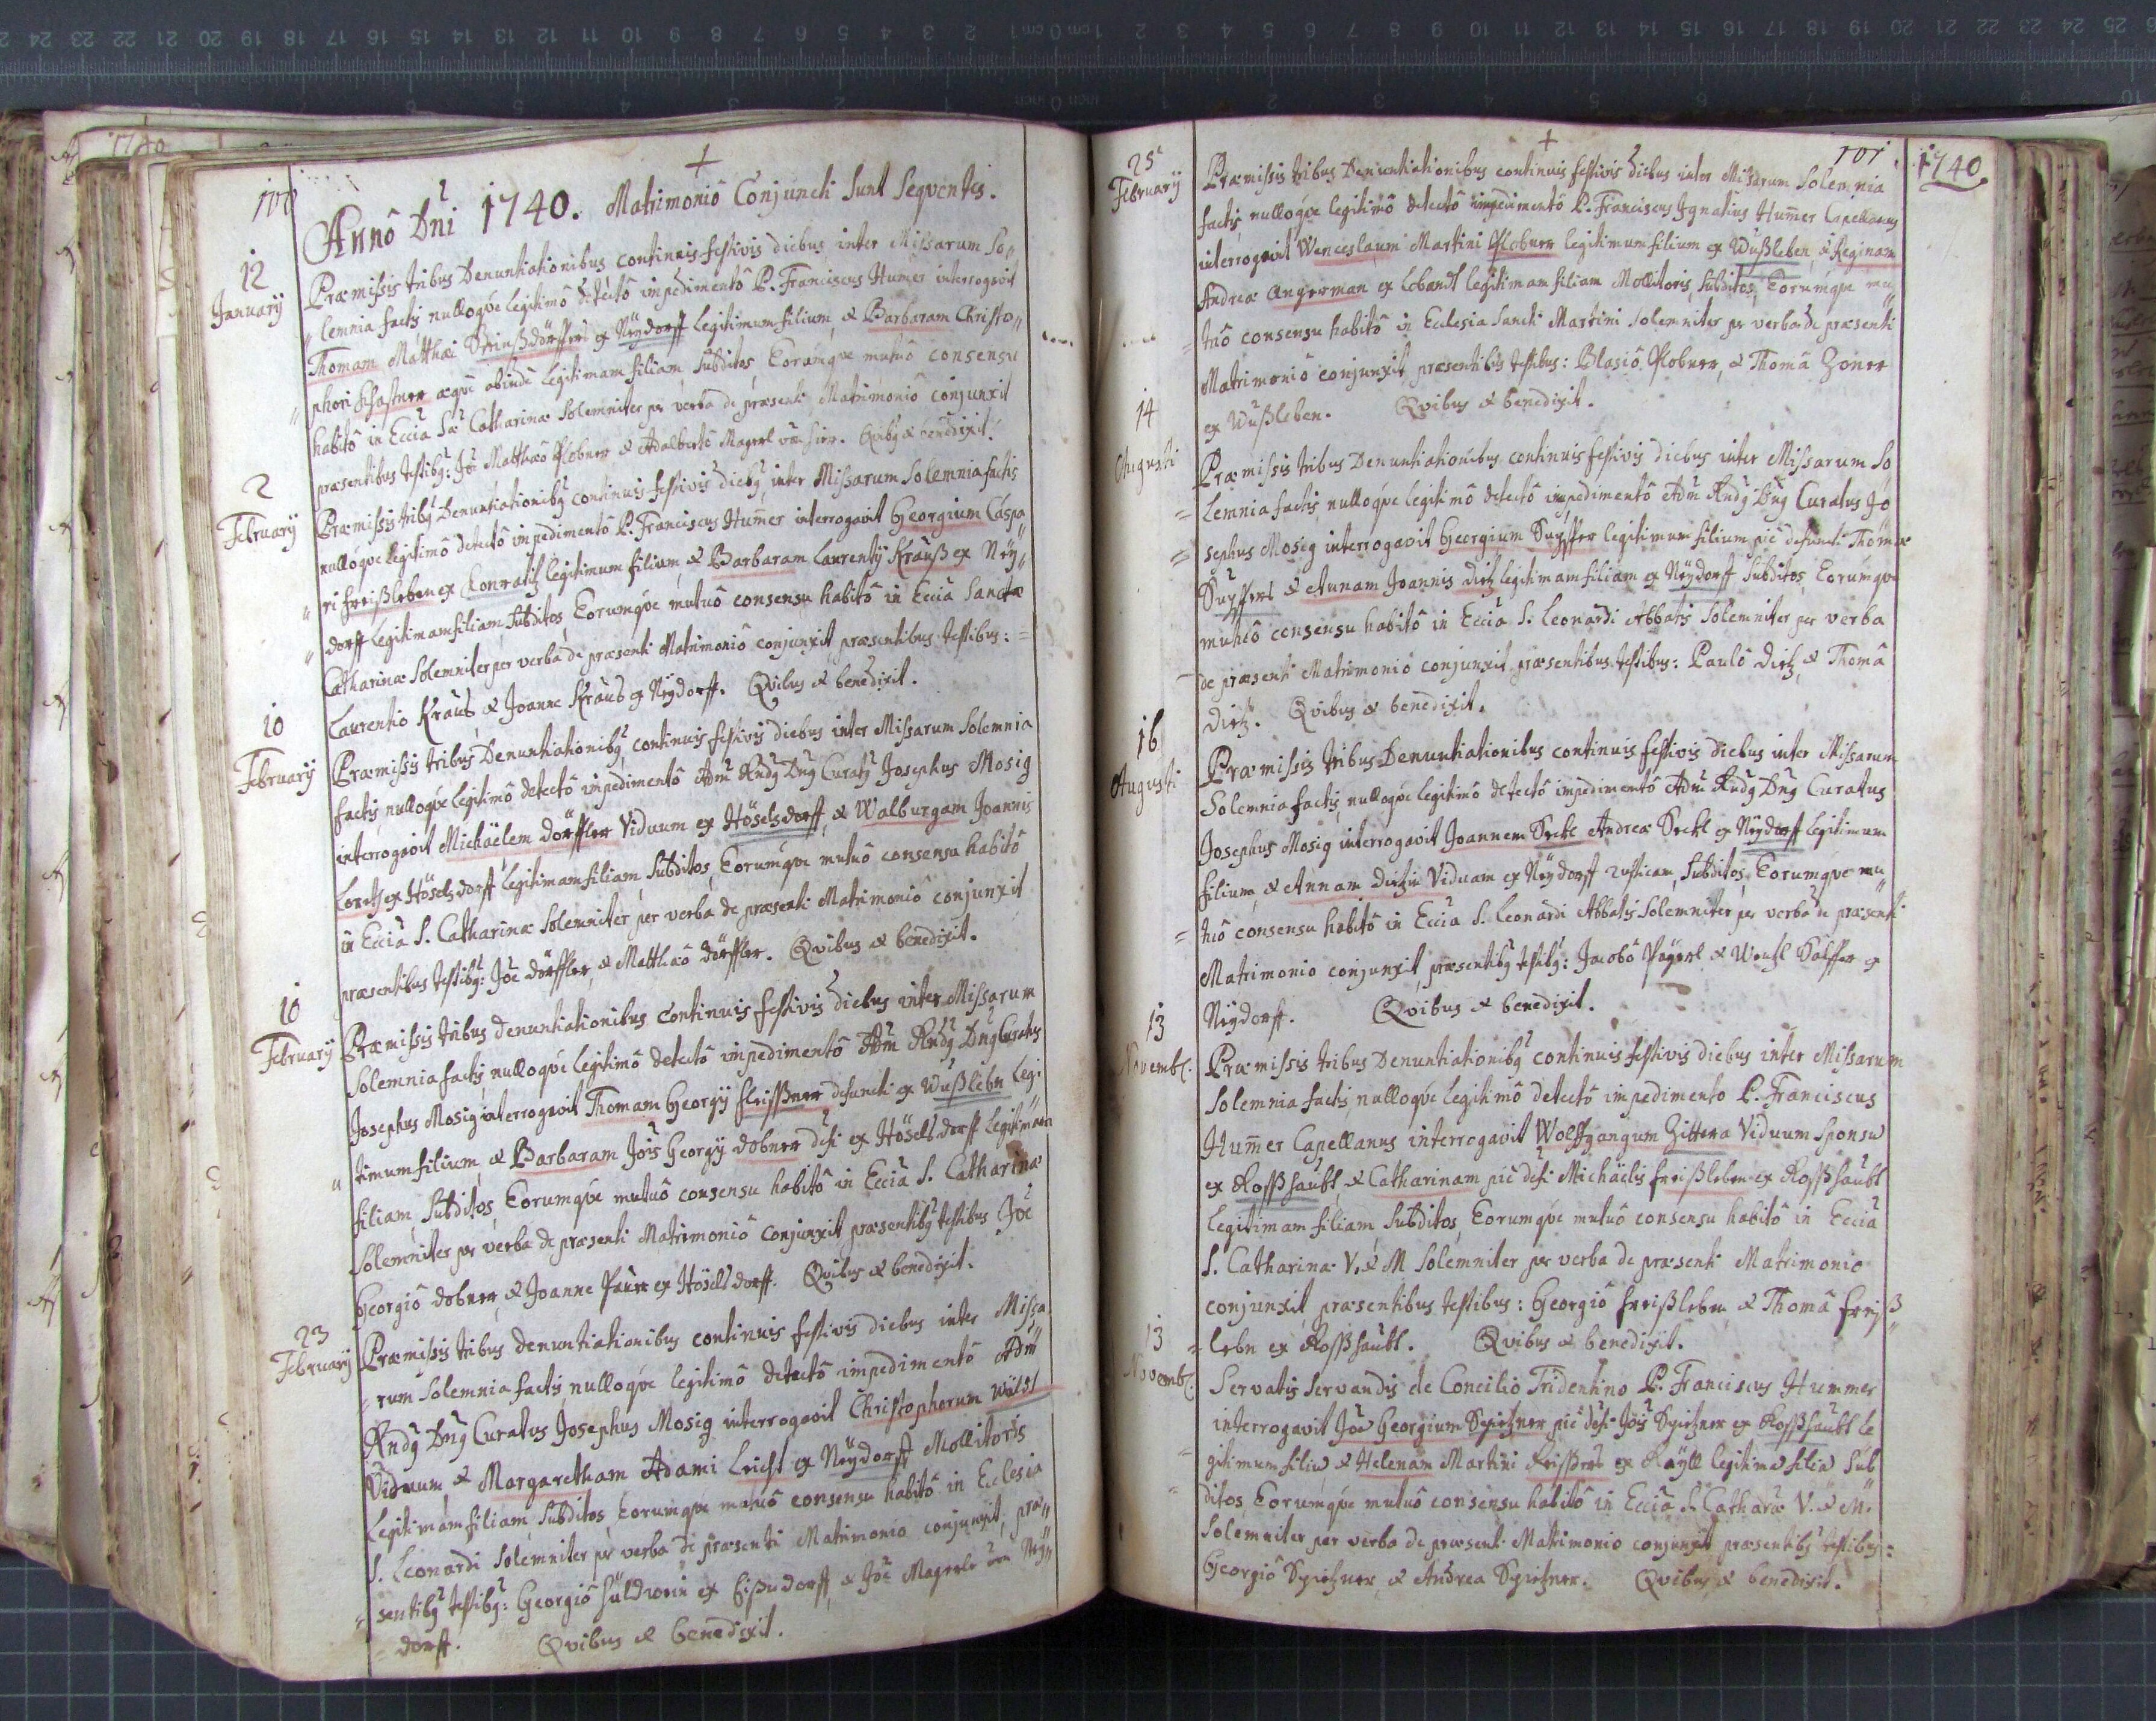 100
Annô Dni 1740. Matrimoniô Conjuncti Sunt Seqventes.
12
January
Præmissis tribus Denuntiationibus continuis festivis diebus inter Missarum So„
„lemnia factis nulloq́ve legitimô detectô impedimentô P. Franciscus Humer interrogavit
Thomam Matthæi ex Neÿdorff legitimum filium, & Barbaram Christo„
„phori æqve abinde legitimam filiam, Subditos, Eorumq́ve mutuô consensu
habitô in Eccĩa Sæ Catharinæ Solemniter per verba de præsenti Matrimoniô conjunxit
præsentibus testibg: Joe Matthæô & Adalbertô Magerl Qvibg & benedixit.
2
February
Præmissis tribg Denuntiationibg continuis festivis diebg inter Missarum Solemnia factis
nulloq́ve legitimô detectô impedimentô P. Franciscus Hum̃er interrogavit Georgium Caspa„
„ri freißleben ex Conratiz legitimum filium, & Barbaram Laurentÿ Krauß ex Neÿ„
„dorff legitimam filiam, Subditos, Eorumq́ve mutuô consensu habitô in Eccĩa Sanctæ
Catharinæ Solemniter per verba de præsenti Matrimoniô conjunxit præsentibus testibus: =
Laurentio Kraus, & Joanne Kraus ex Neÿdorff. Qvibus & benedixit.
10
February
Præmissis tribus Denuntiationibg continuis festivis diebus inter Missarum Solemnia
factis, nulloq́ve legitimô detectô impedimentô Adm̃ Rndg Dng Curatg Josephus Mosig
interrogavit Michäelem dörffler Viduum ex Höselsdorff, & Walburgam Joannis
Loretz ex Höselsdorff legitimam filiam, Subditos, Eorumq́ve mutuô consensu habitô
in Eccĩa S. Catharinæ Solemniter per verba de præsenti Matrimoniô conjunxit
præsentibus testibg: Joe dörffler, & Matthæô dörffler. Qvibus & benedixit.
10
February
Præmissis tribus denuntiationibus continuis festivis diebus inter Missarum
Solemnia factis, nulloq́ve legitimô detectô impedimentô Adm̃ Rndg Dng Curatus
Josephus Mosig interrogavit Thomam Georgÿ fleissner defuncti ex Wußlebn legi„
„timum filium, & Barbaram Jois Georgÿ dobner defti ex Höselsdorff legitimam
filiam, Subditos, Eorumq́ve mutuô consensu habitô in Eccĩa S. Catharinæ
Solemniter per verba de præsenti Matrimoniô conjunxit præsentibg testibus Joe
Georgiô dobner, & Joanne Paur ex Höselsdorff. Qvibus & benedixit.
23
February
Præmissis tribus denuntiationibus continuis festivis diebus inter Missa„
„rum Solemnia factis, nulloq́ve legitimô detectô impedimentô Adm̃
Rndg Dng Curatus Josephus Mosig interrogavit Christophorum Wildt
Viduum & Margaretham Adami Leicht ex Neÿdorff Mollitoris
legitimam filiam, Subditos, Eorumq́ve mutuô consensu habitô in Eclesia
S. Leonardi Solemniter per verba de præsenti Matrimonio conjunxit, præ„
„sentibg testibg: Georgiô ex & Joe Magerle Neÿ„
„dorff. Qvibus & benedixit.
101
1740
25
February
Præmissis tribus Denuntiationibus continuis festivis diebus inter Missarum Solemnia
factis, nulloq́ve legitimô detectô impedimentô P. Franciscus Ignatius Hum̃er Capellanus
interrogavit Wenceslaum Martini legitimum filium ex Wußleben, & Reginam
Andreæ Angerman ex legitimam filiam Mollitoris, Subditos, Eorumq́ve mu„
„tuô consensu habitô in Eclesia Sancti Martini Solemniter per verba de præsenti
Matrimoniô conjunxit præsentibus testibus: Blasiô & Thomâ Zoner
ex Wußleben. Qvibus & benedixit.
14
Augusti
Præmissis tribus Denuntiationibus continuis festivis diebus inter Missarum So
= lemnia factis, nulloq́ve legitimô detectô impedimentô Adm̃ Rndg Dng Curatus Jo
= sephus Mosig interrogavit Georgium legitimum filium pie defuncti Thomæ
& Annam Joannis dietz legitimam filiam ex Neÿdorff Subditos, Eorumq́ve
mutuô consensu habitô in Eccĩa S. Leonardi Abbatis Solemniter per verba
de præsenti Matrimoniô conjunxit præsentibus testibus: Paulô dietz, & Thomâ
dietz. Qvibus & benedixit.
16
Augusti
Præmissis tribus Denuntiationibus continuis festivis diebus inter Missarum
Solemnia factis, nulloq́ve legitimô detectô impedimentô Adm̃ Rndg Dng Curatus
Josephus Mosig interrogavit Joannem Seckl Andreæ Seckl ex Neÿdorff legitimum
filium, & Annam dietzin Viduam ex Neÿdorff rusticam, Subditos, Eorumq́ve mu„
= tuô consensu habitô in Eccĩa S. Leonardi Abbatis Solemniter per verba de præsenti
Matrimonio conjunxit, præsentibg testibg: Jacobô Pägerl & Wentzl Salffer ex
Neÿdorff. Qvibus & benedixit.
13
Novemb.
Præmissis tribus Denuntiationibg continuis festivis diebus inter Missarum
Solemnia factis, nulloq́ve legitimô detectô impedimento P. Franciscus
Hum̃er Capellanus interrogavit Wolffgangum Zittera Viduum Sponsũ
ex Rosshaubt, & Catharinam pie defti Michäelis freißleben ex Rosshaubt
legitimam filiam, Subditos, Eorumq́ve mutuô consensu habitô in Eccĩa
S. Catharinæ V. & M Solemniter per verba de præsenti Matrimonio
conjunxit, præsentibus testibus: Georgiô freißleben & Thomâ freiß„
= lebn ex Rosshaubt. Qvibus & benedixit.
13
Novemb.
Servatis Servandis de Concilio Tridentino P. Franciscus Hummer
interrogavit Joe Georgium Spietzner pie defti Jois Spietzner ex Rosshaubt le
= gitimum filiũ & Helenam Martini ex legitimã filiã Sub
= ditos, Eorumq́ve mutuô consensu habitô in Eccĩa S. Catharæ V. & M.
Solemniter per verba de præsenti Matrimonio conjunxit præsentibg testibus:
Georgiô Spietzner, & Andrea Spietzner. Qvibus & benedixit.